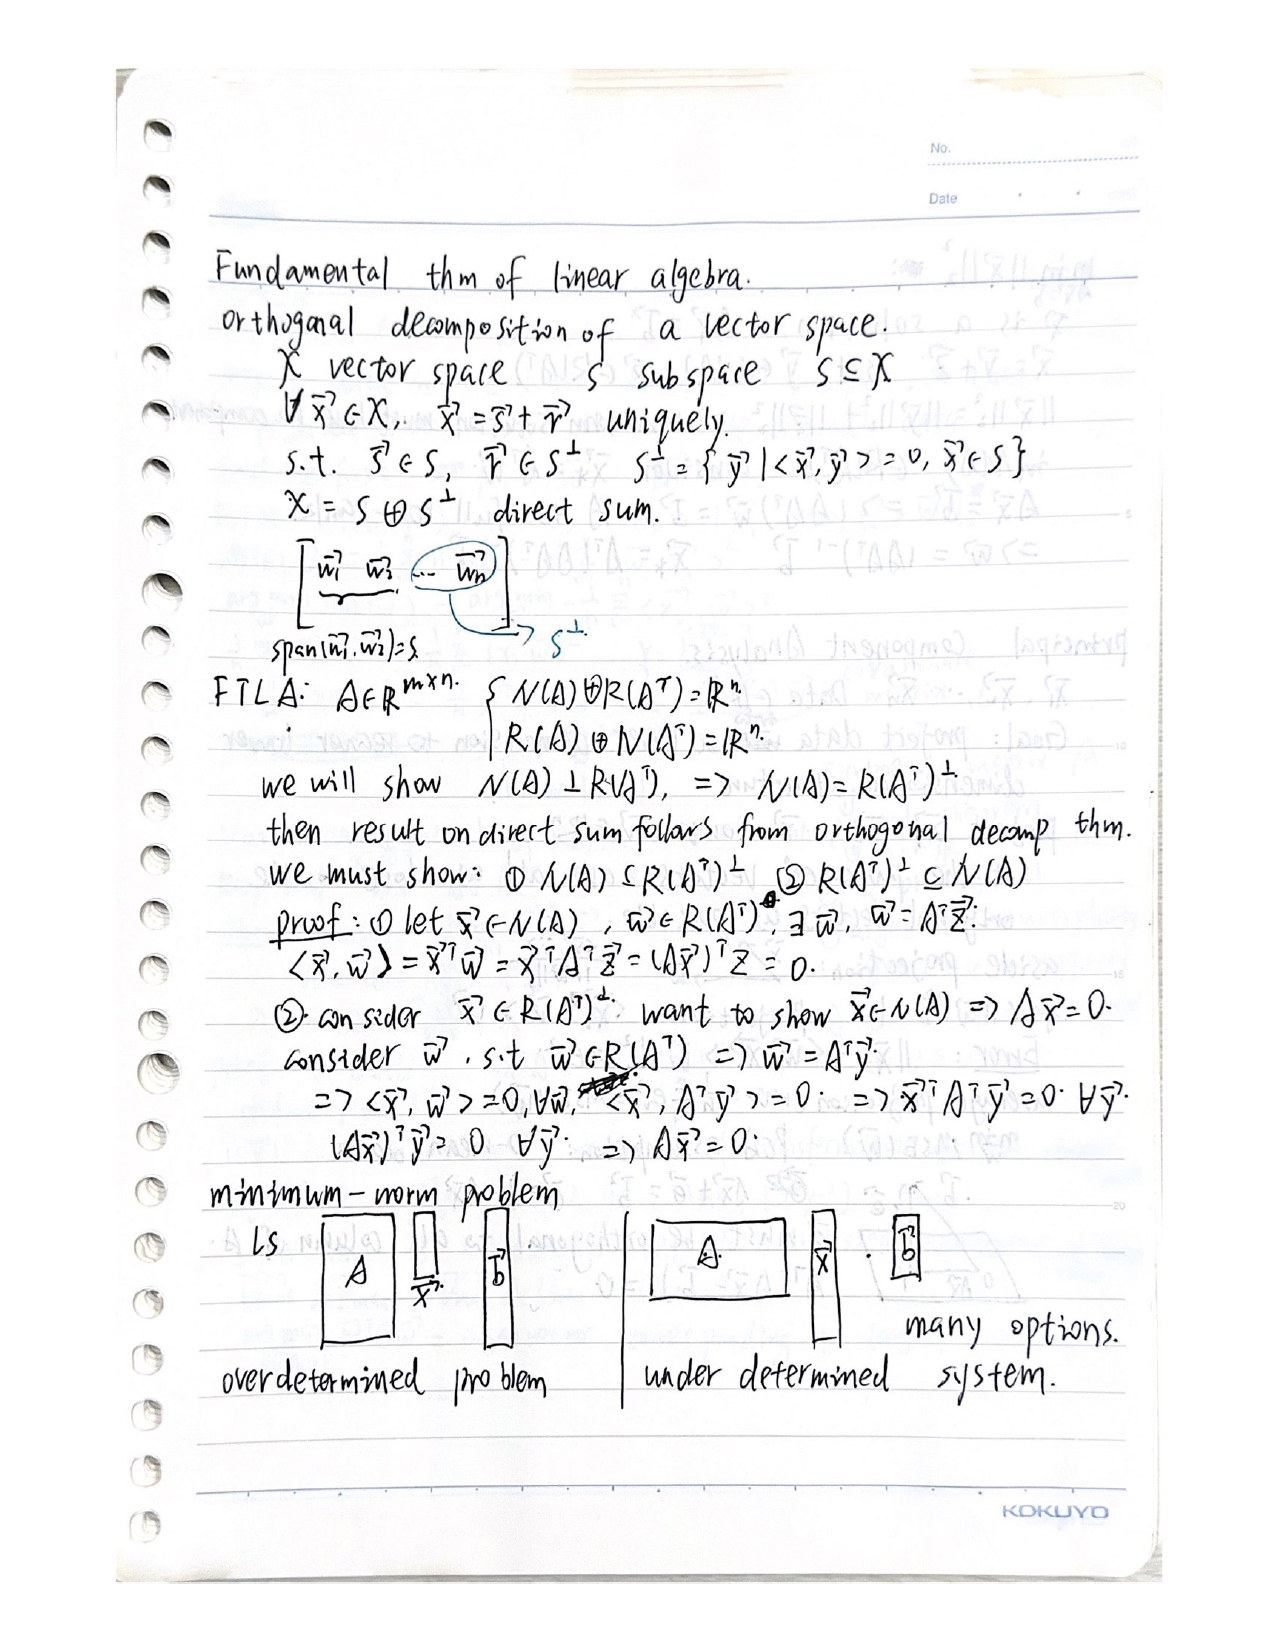 No.
Date
Fundamental thm of linear algebra.
orthogonal decomposition of a vector space.
X vector space S subspace S ⊆ X
∀ x⃗ ∈ X, x⃗ = s⃗ + r⃗ uniquely.
s.t. s⃗ ∈ S, r⃗ ∈ S⊥ S⊥ = { y⃗ | <x⃗, y⃗> = 0, x⃗ ∈ S }
X = S ⊕ S⊥ direct sum.
[ w⃗1 w⃗2 ... w⃗n ]
→ S⊥
span(w⃗1, w⃗2) = S
FTLA: A ∈ R^{m×n}. { N(A) ⊕ R(Aᵀ) = Rⁿ.
R(A) ⊕ N(Aᵀ) = Rⁿ.
we will show N(A) ⊥ R(Aᵀ), => N(A) = R(Aᵀ)⊥
then result on direct sum follows from orthogonal decomp thm.
we must show: ① N(A) ⊆ R(Aᵀ)⊥ ② R(Aᵀ)⊥ ⊆ N(A)
proof: ① let x⃗ ∈ N(A), w⃗ ∈ R(Aᵀ), ∃ w⃗, w⃗ = Aᵀz⃗.
<x⃗, w⃗> = x⃗ᵀw⃗ = x⃗ᵀAᵀz⃗ = (Ax⃗)ᵀz = 0.
②. consider x⃗ ∈ R(Aᵀ)⊥. want to show x⃗ ∈ N(A) => Ax⃗ = 0.
consider w⃗. s.t w⃗ ∈ R(Aᵀ) => w⃗ = Aᵀy⃗.
=> <x⃗, w⃗> = 0, ∀w⃗, <x⃗, Aᵀy⃗> = 0. => x⃗ᵀAᵀy⃗ = 0. ∀y⃗.
(Ax⃗)ᵀy⃗ = 0 ∀y⃗. => Ax⃗ = 0.
minimum-norm problem
LS A x⃗ b⃗ A x⃗ . b⃗
many options.
overdetermined problem under determined system.
KOKUYO